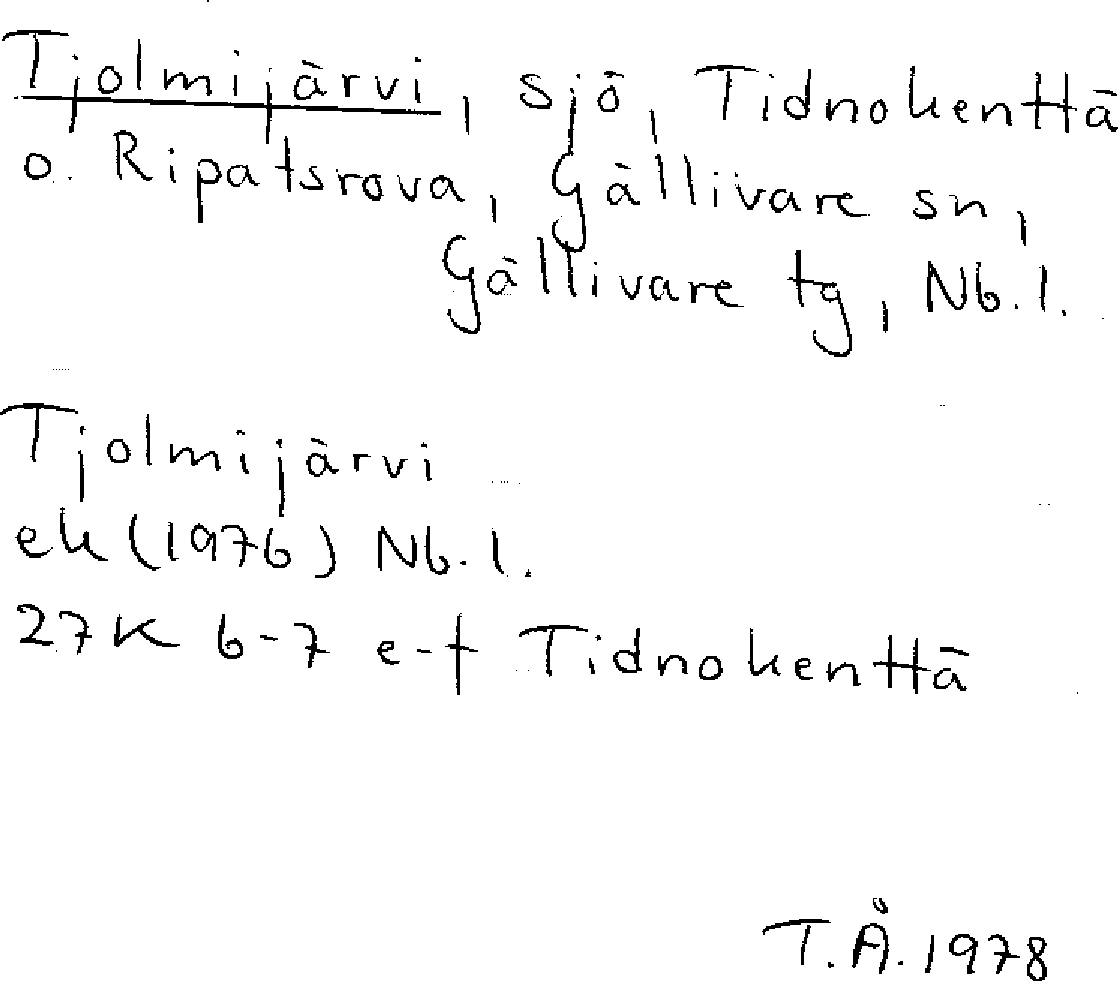 Tjolmijärvi, sjö, Tidnokenttä
o. Ripatsrova, Gällivare sn,
Gällivare tg, Nb. l.
Tjolmijärvi
ek (1976) Nb. l.
27K 6-7 e-f Tidnokenttä
T.Å. 1978